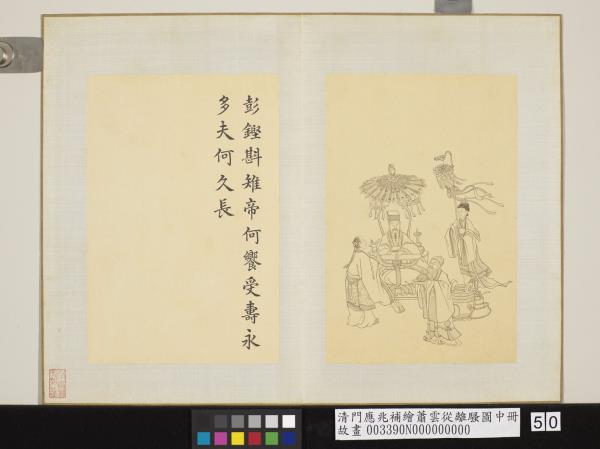 彭鏗斟雉帝何饗受壽永
多夫何久長
清門應兆補繪蕭雲從離騷圖中冊
故畫003390N000000000
50